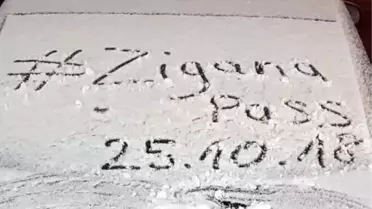 #Zigana
- -Pass
25.10.18